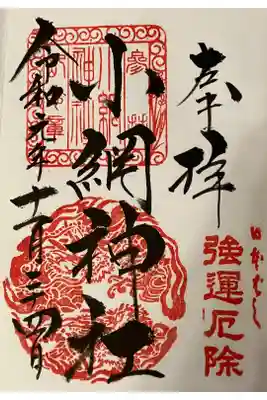 奉拝
日本ばし
強運厄除
小網神社
令和元年十一月二十四日